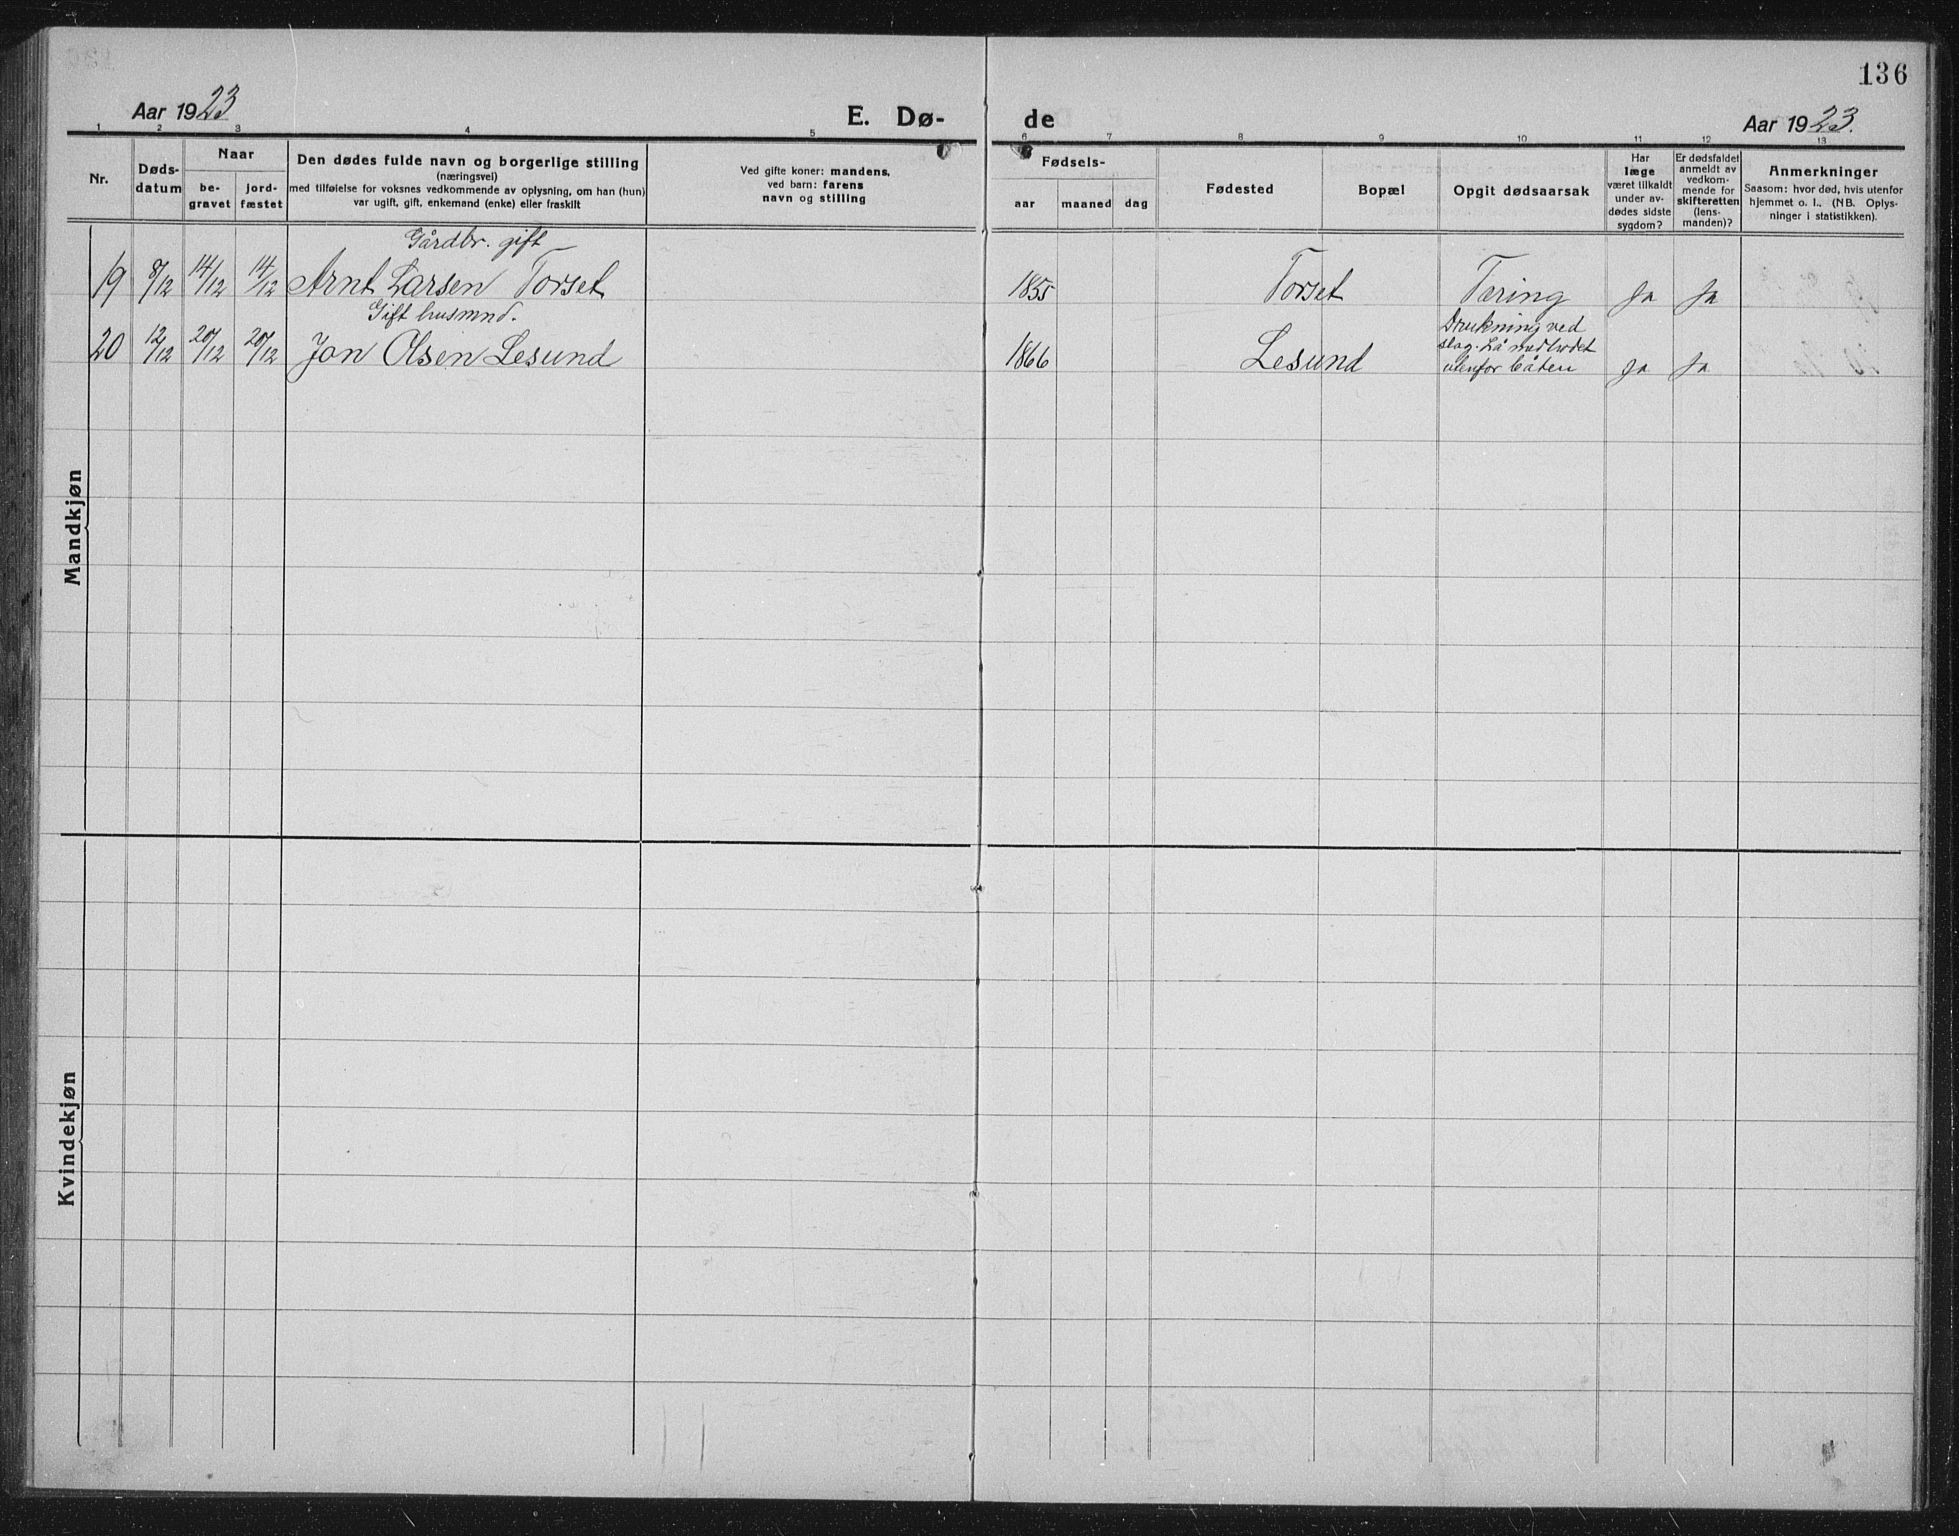 136
Aar 1923
E. Dø-
de
Aar 1923.
1 2 3 4 5 6 7 8 9 10 11 12 13
Nr.
Døds-
datum
Naar
be-
gravet
jord-
fæstet
Den dødes fulde navn og borgerlige stilling
(næringsvei)
med tilføielse for voksnes vedkommende av oplysning, om han (hun)
var ugift, gift, enkemand (enke) eller fraskilt
Ved gifte koner: mandens,
ved barn: farens
navn og stilling
Fødsels-
aar maaned dag
Fødested
Bopæl
Opgit dødsaarsak
Har
læge
været tilkaldt
under av-
dødes sidste
sygdom?
Er dødsfaldet
anmeldt av
vedkom-
mende for
skifteretten
(lens-
manden)?
Anmerkninger
Saasom: hvor død, hvis utenfor
hjemmet o. l., (NB. Oplys-
ninger i statistikken).
Mandkjøn
Gårdbr. gift
19 8/12 14/12 14/12 Arnt Larsen Torset 1855 Torset Tæring Ja Ja
Gift husmnd.
20 12/12 20/12 20/12 Jon Olsen Lesund 1866 Lesund
Drukning ved
slag. Lå med hodet
utenfor båten
Ja Ja
Kvindekjøn